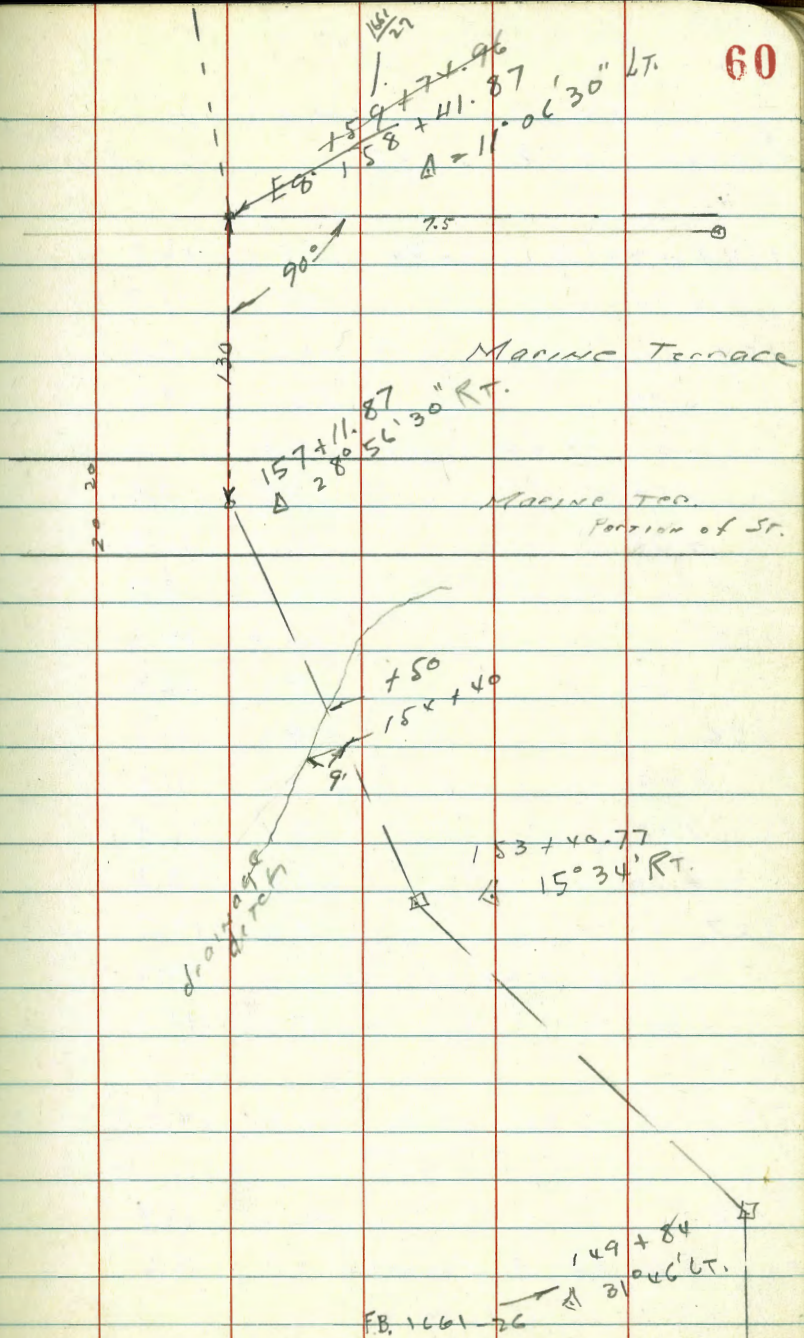 60
1661/27
159 + 74.96
158 + 41.87
Δ = 11° 06' 30" LT.
7.5
90°
130
Marine Terrace
157 + 11.87
Δ 28° 56' 30" RT.
20
20
Marine Ter.
Portion of St.
+50
154 + 40
9'
153 + 40.77
Δ 15° 34' RT.
drainage
ditch
149 + 84
Δ 31° 46' LT.
F.B. 1661-26